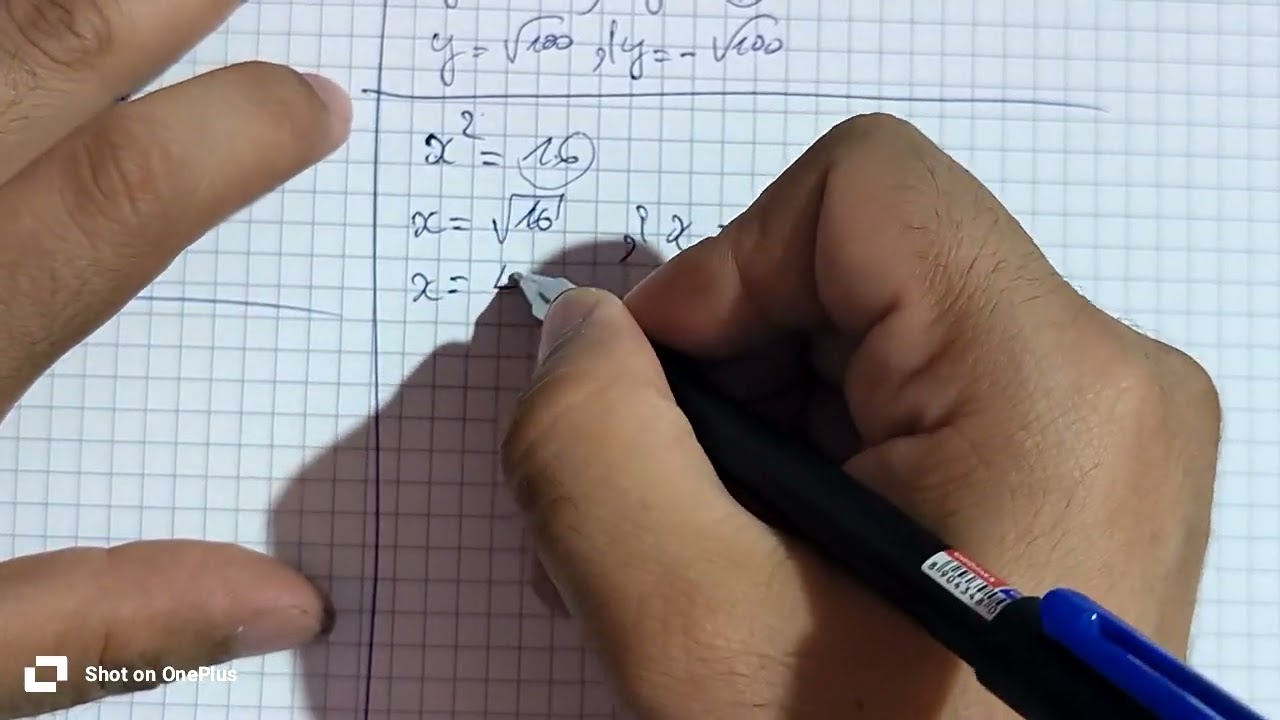 y = √100 , أو y = - √100
x² = 16
x = √16 , أ x
x = 4
Shot on OnePlus